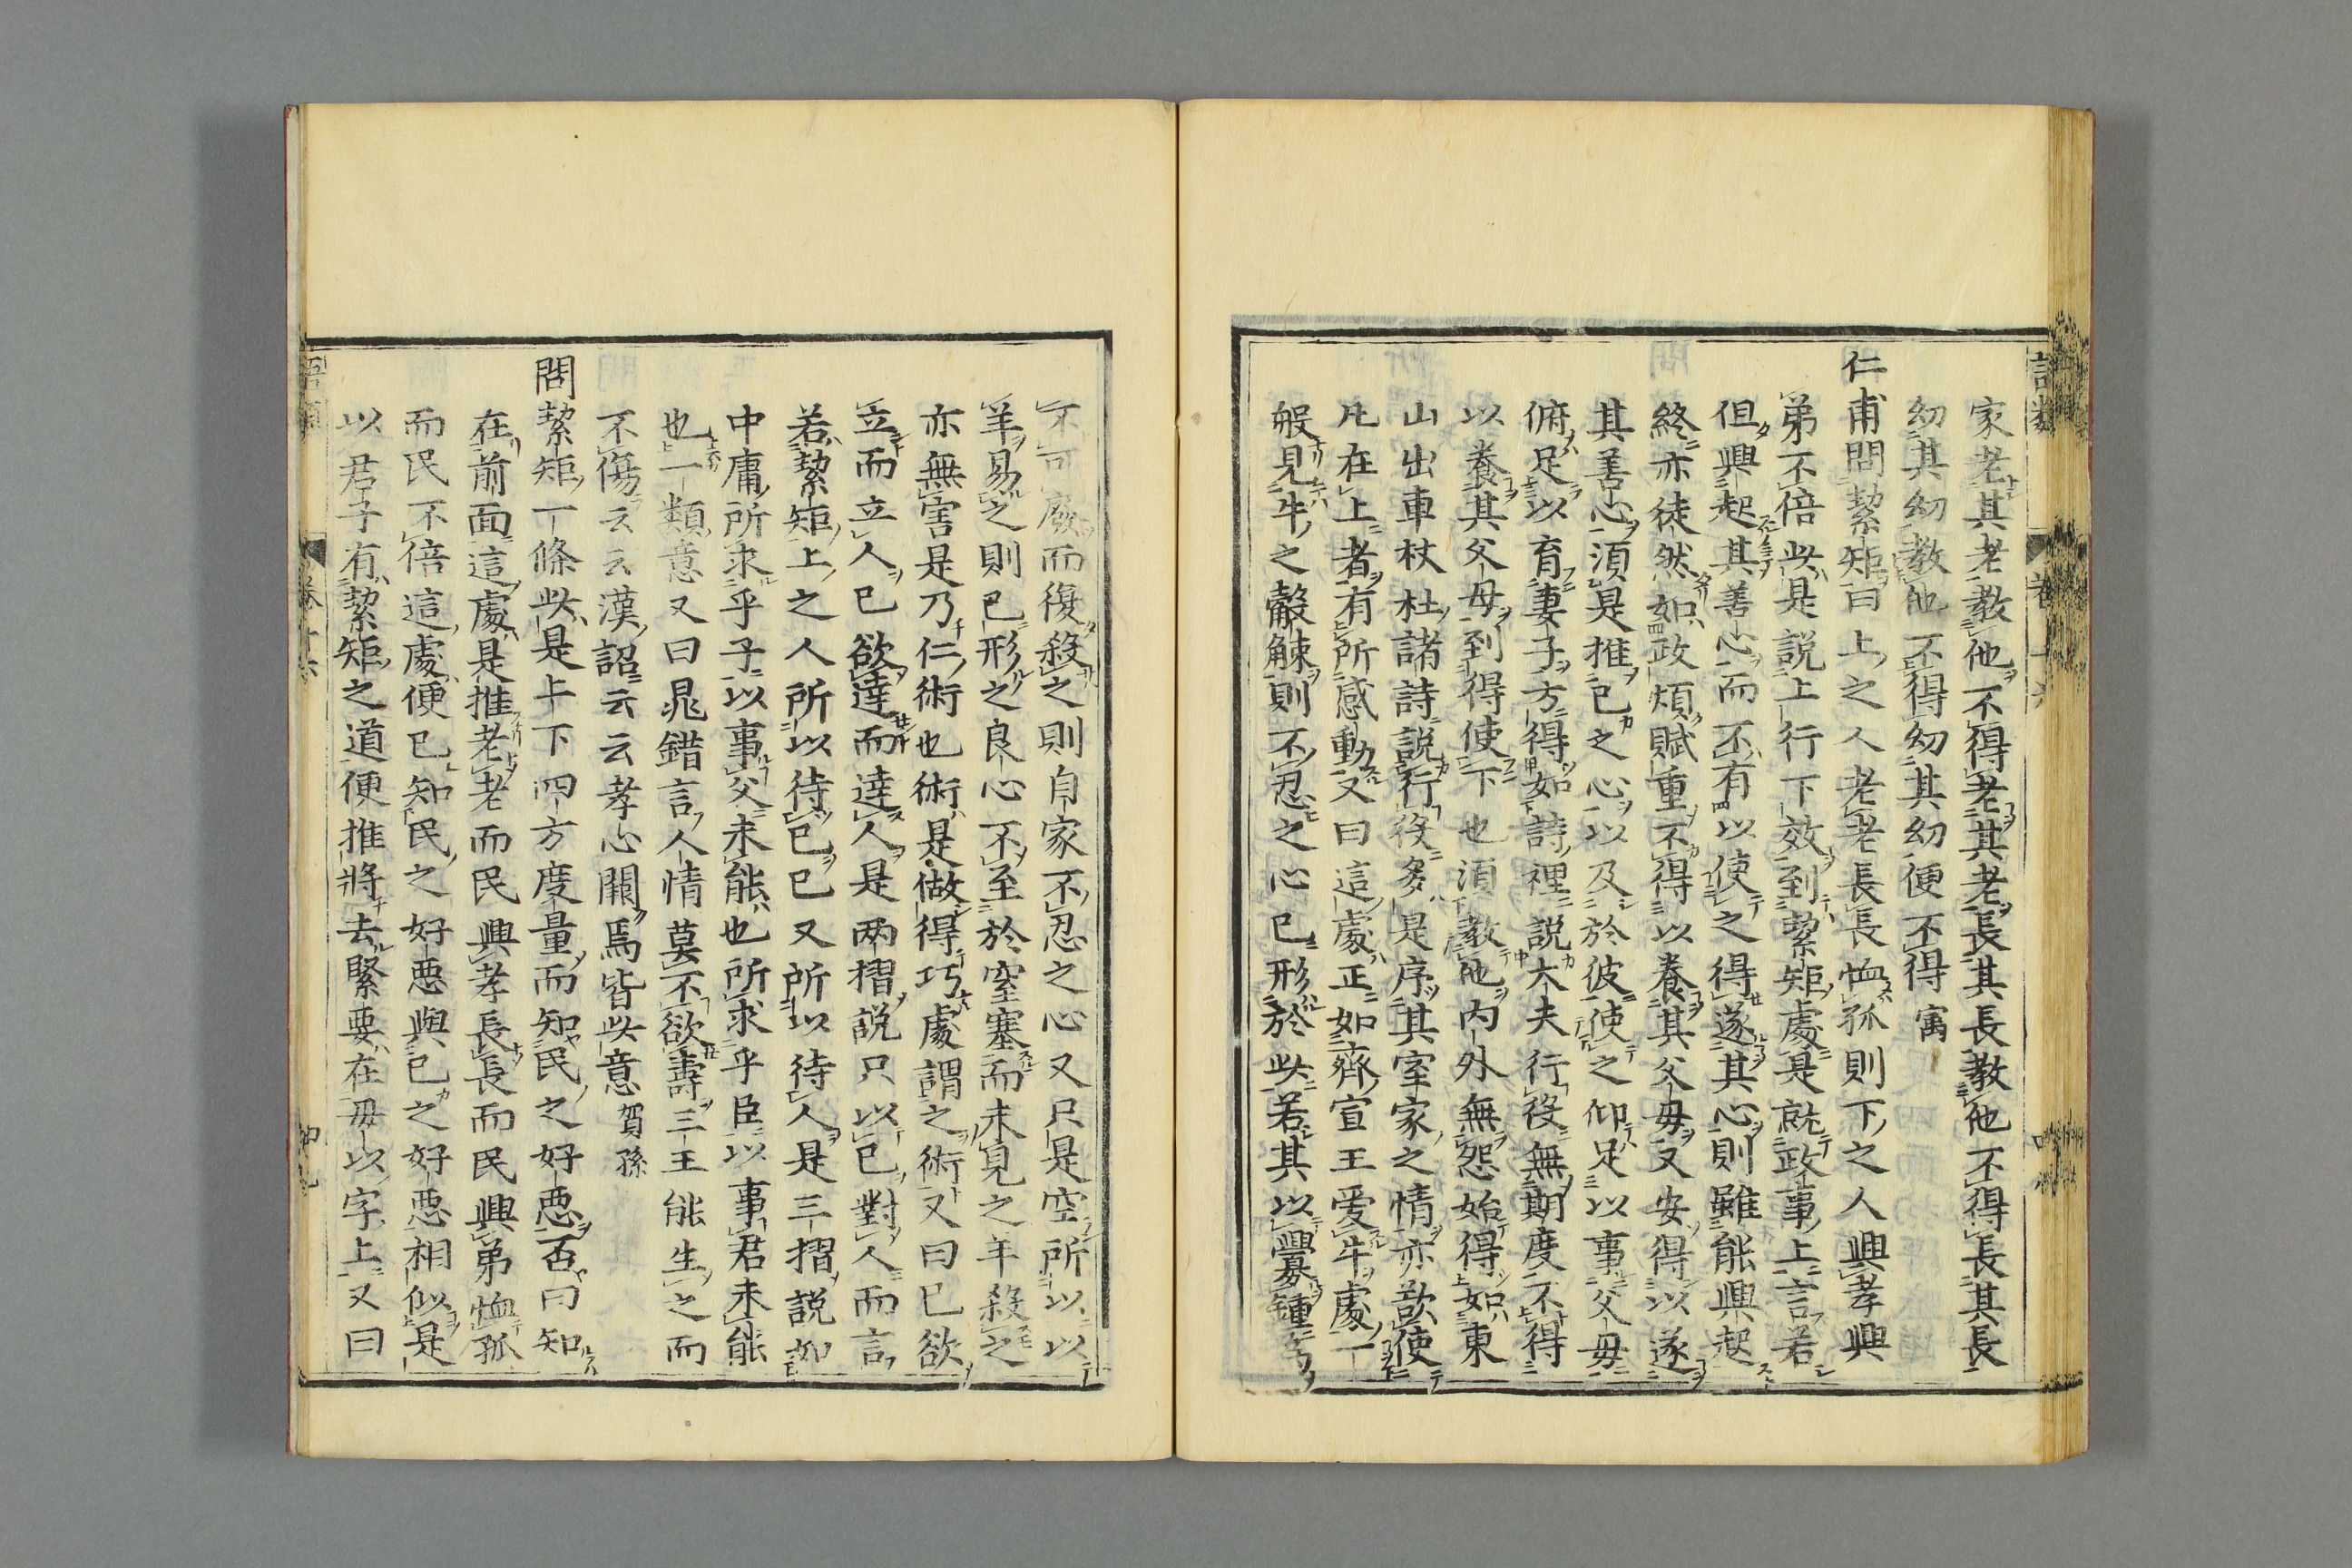 家老其老教他不得老其老長其長教他不得長其長
幼其幼教他不得幼其幼便不得㝢
仁甫問絜矩曰上之人老老長長恤孤則下之人興孝興
弟不倍此是説上行下效到絜矩處是就政事上言若
但興起其善心而不有以使之得遂其心則雖能興起
終亦徒然如政煩賦重不得以養其父母又安得以遂
其善心須是推已之心以及於彼使之仰足以事父母
俯足以育妻子方得如詩裡説大夫行役無期度不得
以養其父母到得使下也須教他内外無怨始得如東
山出車杕杜諸詩説行役多是序其室家之情亦欲使
凡在上者有所感動又曰這處正如齊宣王愛牛處一
般見牛之觳觫則不忍之心已形於此若其以釁鍾爲
不可廢而復殺之則自家不忍之心又只是空所以以
羊易之則已形之良心不至於窒塞而未見之羊殺之
亦無害是乃仁術也術是做得巧處謂之術又曰已欲
立而立人已欲達而達人是兩摺説只以已對人而言
若絜矩上之人所以待已已又所以待人是三摺説如
中庸所求乎子以事父未能也所求乎臣以事君未能
也一類意又曰晁錯言人情莫不欲壽三王能生之而
不傷云云漢詔云云孝心闕焉皆此意賀孫
問絜矩一條此是上下四方度量而知民之好惡否曰知
在前面這處是推老老而民興孝長長而民興弟恤孤
而民不倍這處便已知民之好惡與已之好惡相似是
以君子有絜矩之道便推將去緊要在毋以字上又曰